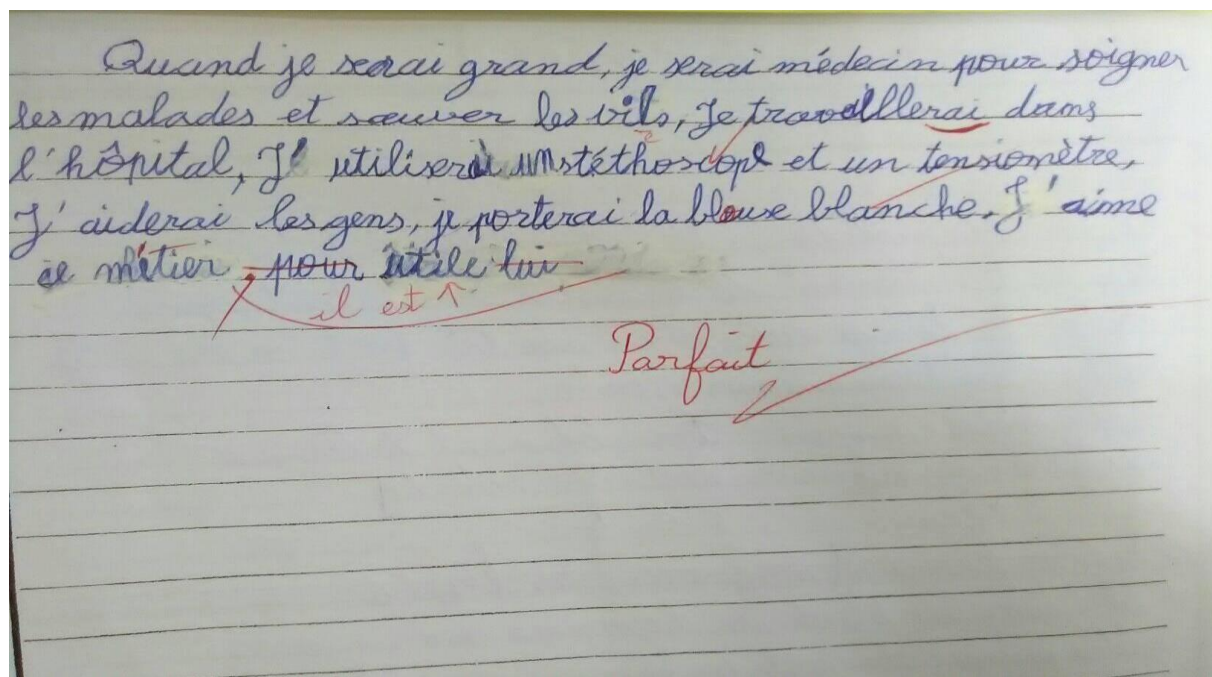 Quand je serai grand, je serai médecin pour soigner
les malades et sauver les vils, Je travaillerai dans
l'hôpital, Je utiliserai un stéthoscope et un tensiomètre,
J'aiderai les gens, je porterai la blouse blanche. J'aime
ce métier, pour utile lui
il est ↑
Parfait